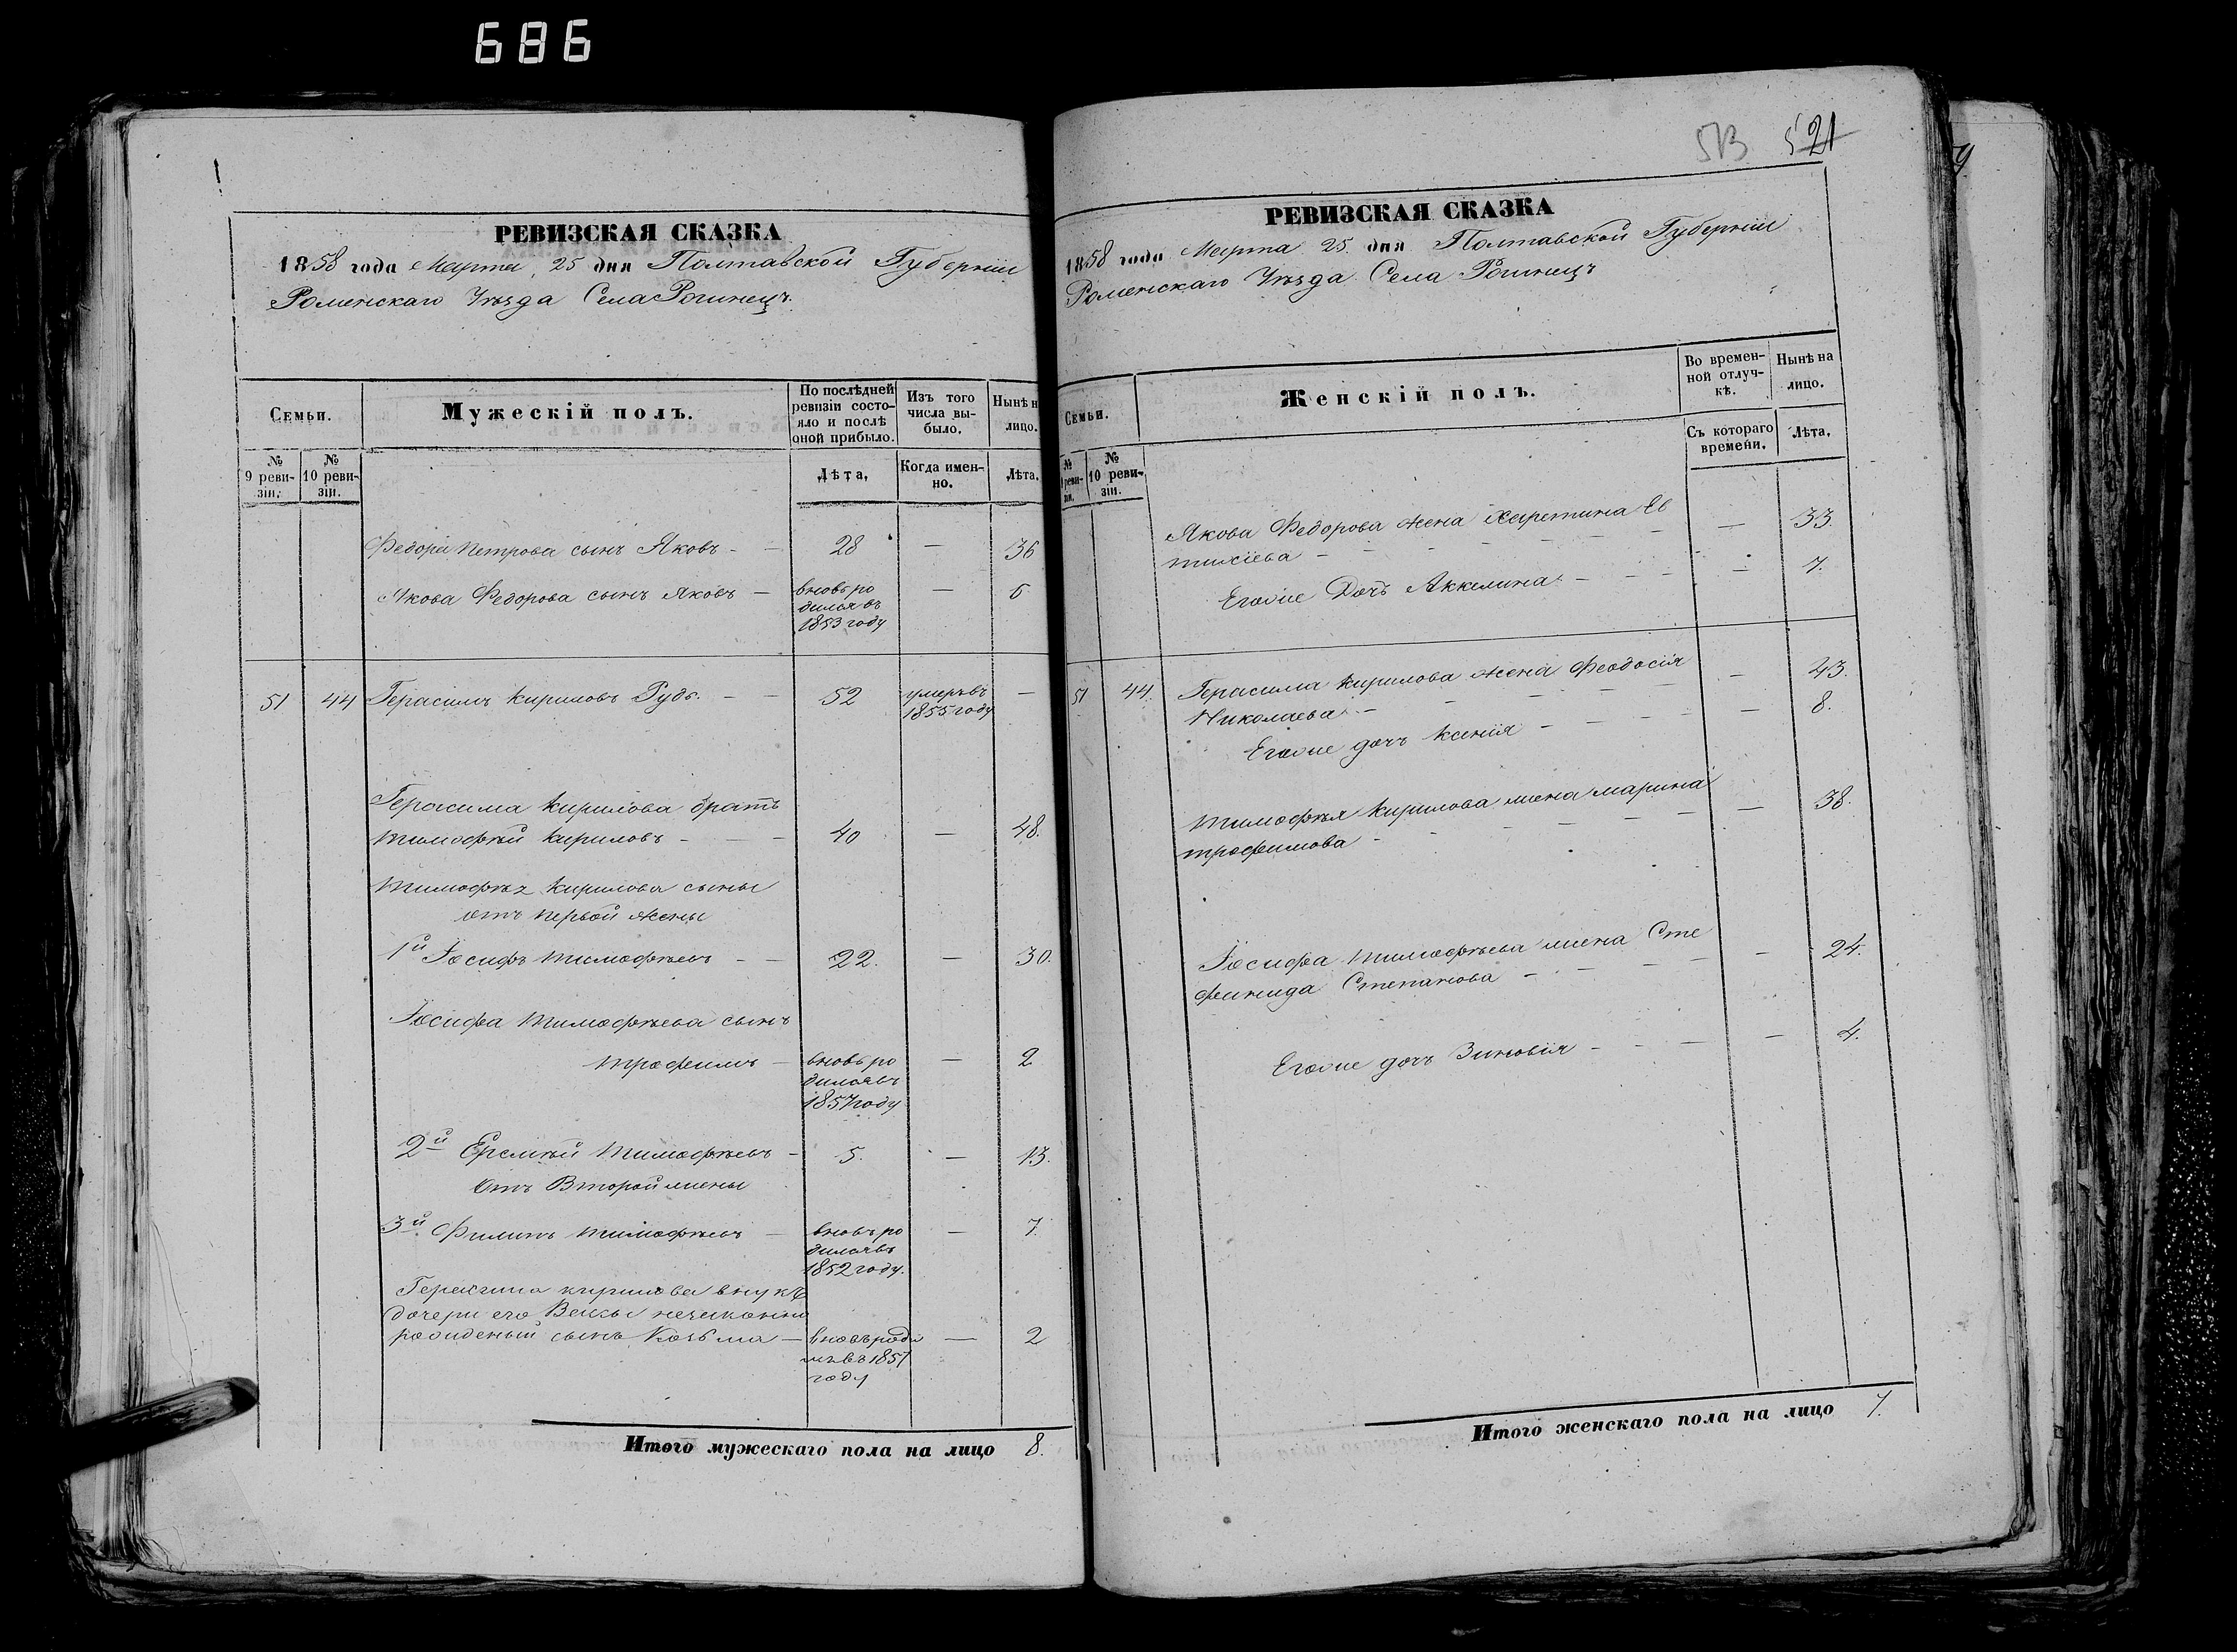 686
РЕВИЗСКАЯ СКАЗКА
1858 года Марта 25 дня Полтавской Губерніи
Роменскаго Уѣзда Села Рогинецъ.
Семьи.
Мужескій полъ.
По послѣдней
ревизіи состо-
яло и послѣ
оной прибыло.
Изъ того
числа вы-
было.
Нынѣ н
лицо.
№
9 реви-
зіи.
№
10 реви-
зіи.
Лѣта,
Когда имен-
но.
Лѣта,
Федора Петрова сынъ Яковъ - - 28 — 36
Якова Федорова сынъ Яковъ — вновь ро — 6
дился въ
1853 году
51 44 Герасимъ Кириловъ Рудь. - - 52 умеръ въ —
1855 году
Герасима Кирилова братъ
Тимофѣй Кириловъ - - - 40 — 48.
Тимофѣя Кирилова сыны
отъ первой жены
1й Іосифъ Тимофѣевъ - - 22. — 30.
Іосифа Тимофѣева сынъ
Трофимъ - вновь ро — 2
дился въ
1857 году
2й Еремѣй Тимофѣевъ - 5. — 13.
отъ Второй жены
3й Филипъ Тимофѣевъ — вновь ро — 7.
дился въ
1852 году.
Герасима Кирилова внукъ
дочери его незаконно
рожденый сынъ Козьма — вновь роди — 2
лъ въ 1857
году
Итого мужескаго пола на лицо 8.
513 521
РЕВИЗСКАЯ СКАЗКА
1858 года Марта 25. дня Полтавской Губерніи
Роменскаго Уѣзда Села Рогинецъ
Семьи.
Женскій полъ.
Во времен-
ной отлуч-
кѣ.
Нынѣ на
лицо.
№
9 реви-
зіи.
№
10 реви-
зіи.
Съ котораго
времени.
Лѣта,
Якова Федорова жена Харетина Ев — 33.
тихіева - - - - - -
Егоже Дочь Аккилина - - - — 7.
51 44. Герасима Кирилова жена Феодосія — 43.
Николаева - - - - - -
Егоже дочь Ксенія - - - - — 8.
Тимофѣя Кирилова жена Марина — 38.
Трофимова - - - - - -
Іосифа Тимофѣева жена Сте — 24.
фанида Степанова - - - -
Егоже дочь Зиновія - - - — 4.
Итого женскаго пола на лицо 7.